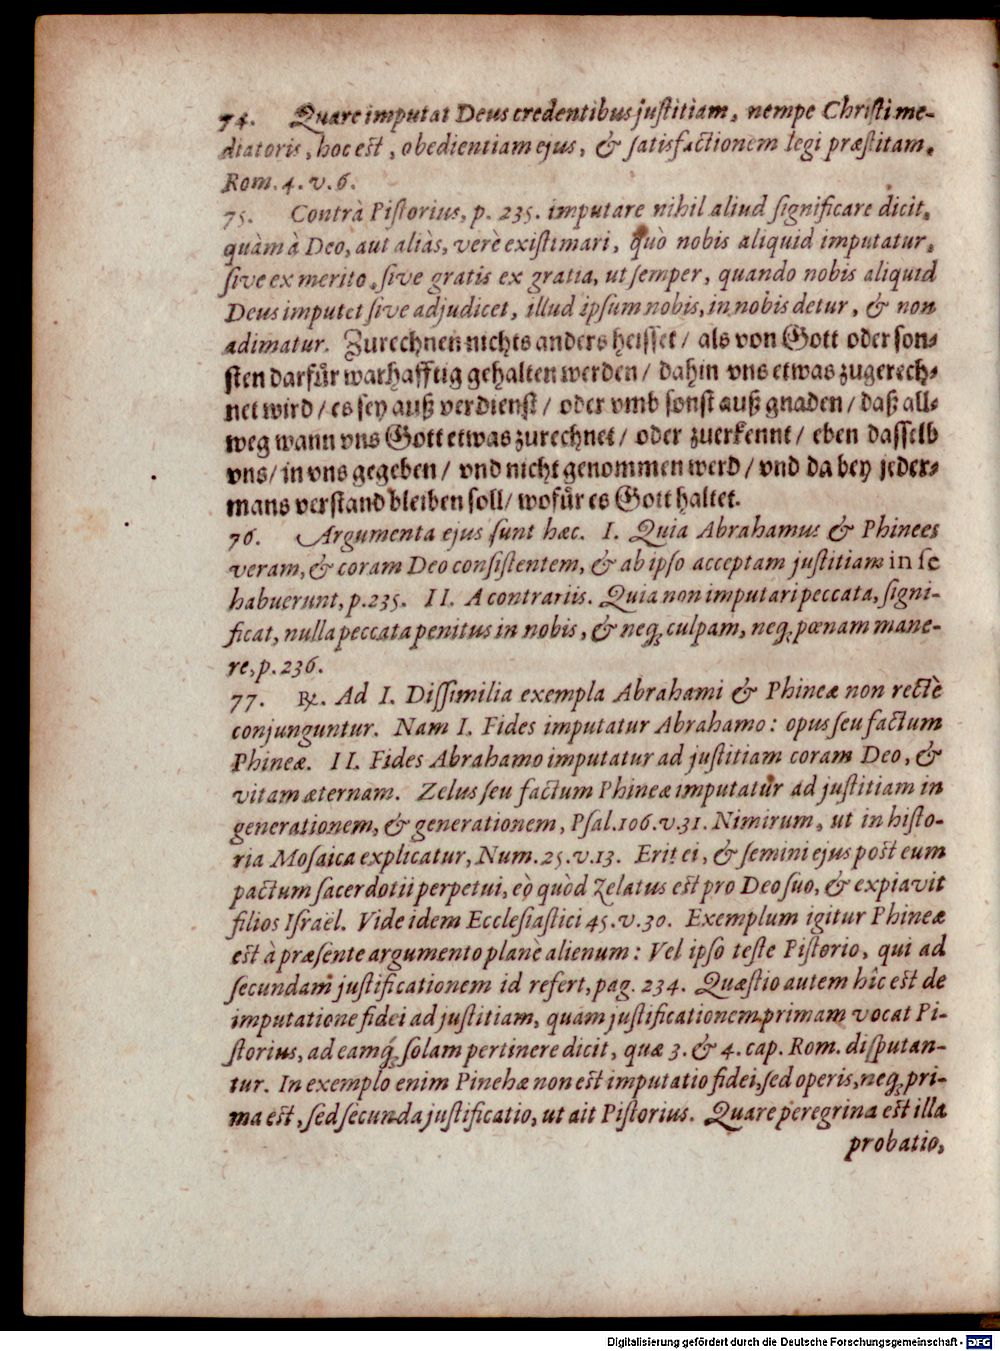 74. Quare imputat Deus credentibus justitiam, nempe Christi me-
diatoris, hoc est, obedientiam ejus, & satisfactionem legi præstitam.
Rom. 4. v. 6.
75. Contrà Pistorius, p. 235. imputare nihil aliud significare dicit,
quàm à Deo, aut aliàs, verè existimari, quò nobis aliquid imputatur,
sive ex merito, sive gratis ex gratia, ut semper, quando nobis aliquid
Deus imputet sive adjudicet, illud ipsum nobis, in nobis detur, & non
adimatur. Zurechnen nichts anders heisset / als von Gott oder son-
sten darfür warhafftig gehalten werden / dahin vns etwas zugerech-
net wird / es sey auß verdienst / oder vmb sonst auß gnaden / daß all-
weg wann vns Gott etwas zurechnet / oder zuerkennt / eben dasselb
vns / in vns gegeben / vnd nicht genommen werd / vnd da bey jeder-
mans verstand bleiben soll / wofür es Gott haltet.
76. Argumenta ejus sunt hæc. I. Quia Abrahamus & Phinees
veram, & coram Deo consistentem, & ab ipso acceptam justitiam in se
habuerunt, p. 235. II. A contrariis. Quia non imputari peccata, signi-
ficat, nulla peccata penitus in nobis, & neq; culpam, neq; pœnam mane-
re, p. 236.
77. ℞. Ad I. Dissimilia exempla Abrahami & Phineæ non rectè
conjunguntur. Nam I. Fides imputatur Abrahamo: opus seu factum
Phineæ. II. Fides Abrahamo imputatur ad justitiam coram Deo, &
vitam æternam. Zelus seu factum Phineæ imputatur ad justitiam in
generationem, & generationem, Psal. 106. v. 31. Nimirum, ut in histo-
ria Mosaica explicatur, Num. 25. v. 13. Erit ei, & semini ejus post eum
pactum sacerdotii perpetui, eò quòd zelatus est pro Deo suo, & expiavit
filios Israël. Vide idem Ecclesiastici 45. v. 30. Exemplum igitur Phineæ
est à præsente argumento planè alienum: Vel ipso teste Pistorio, qui ad
secundam justificationem id refert, pag. 234. Quæstio autem hîc est de
imputatione fidei ad justitiam, quam justificationem primam vocat Pi-
storius, ad eamq́; solam pertinere dicit, quæ 3. & 4. cap. Rom. disputan-
tur. In exemplo enim Pinehæ non est imputatio fidei, sed operis, neq; pri-
ma est, sed secunda justificatio, ut ait Pistorius. Quare peregrina est illa
probatio,
Digitalisierung gefördert durch die Deutsche Forschungsgemeinschaft - DFG